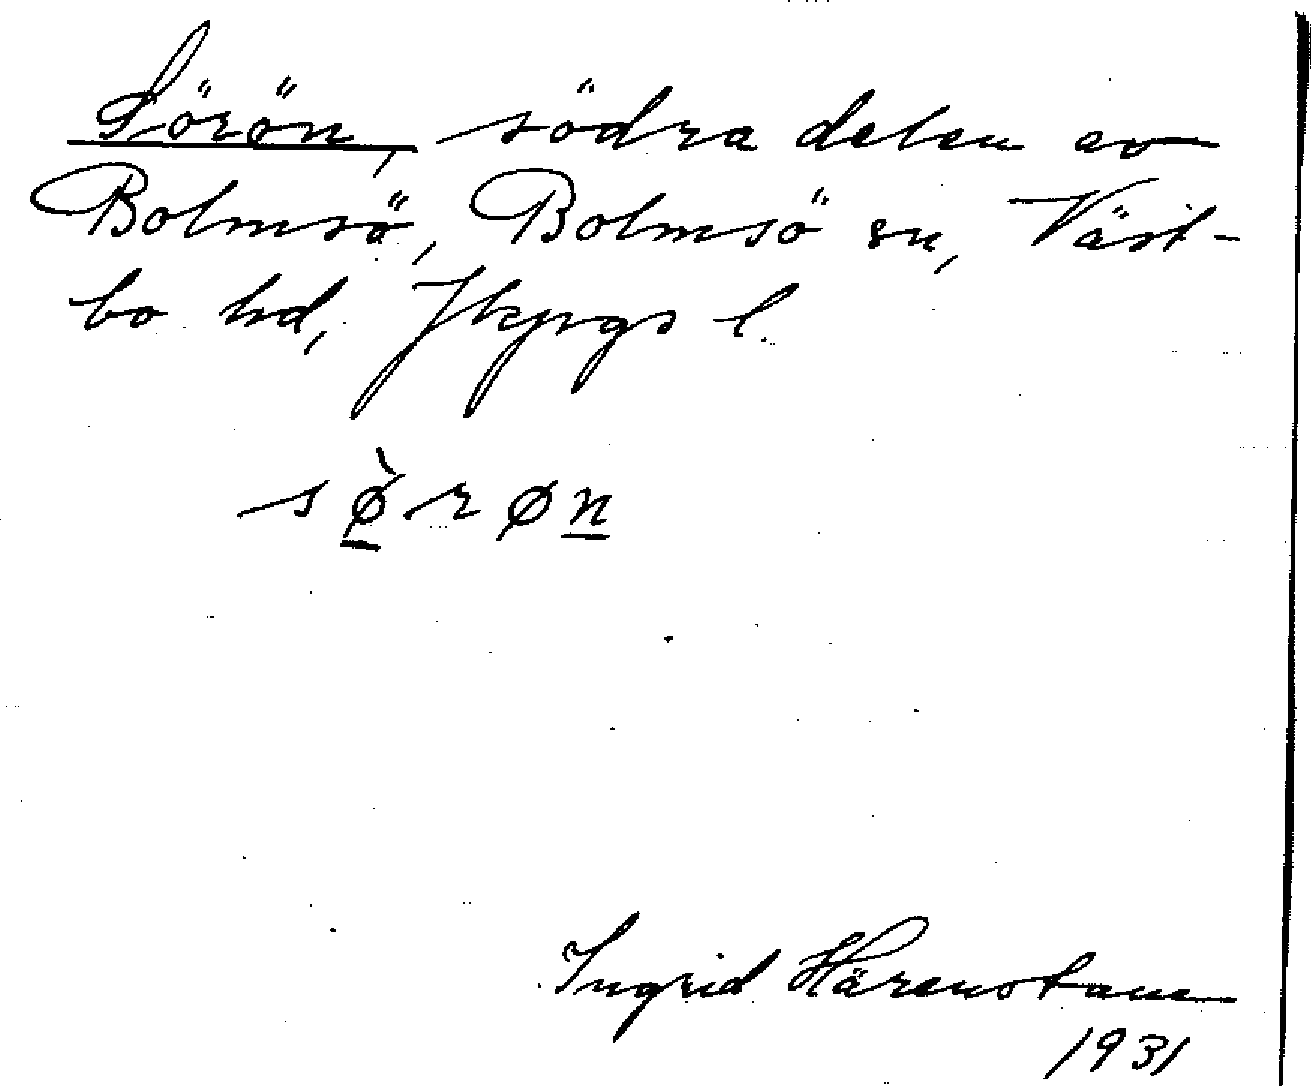 Sörön, södra delen av
Bolmsö, Bolmsö sn, Väst-
bo hd, Jkpgs l.
sø̀røn
Ingrid Härenstam
1931